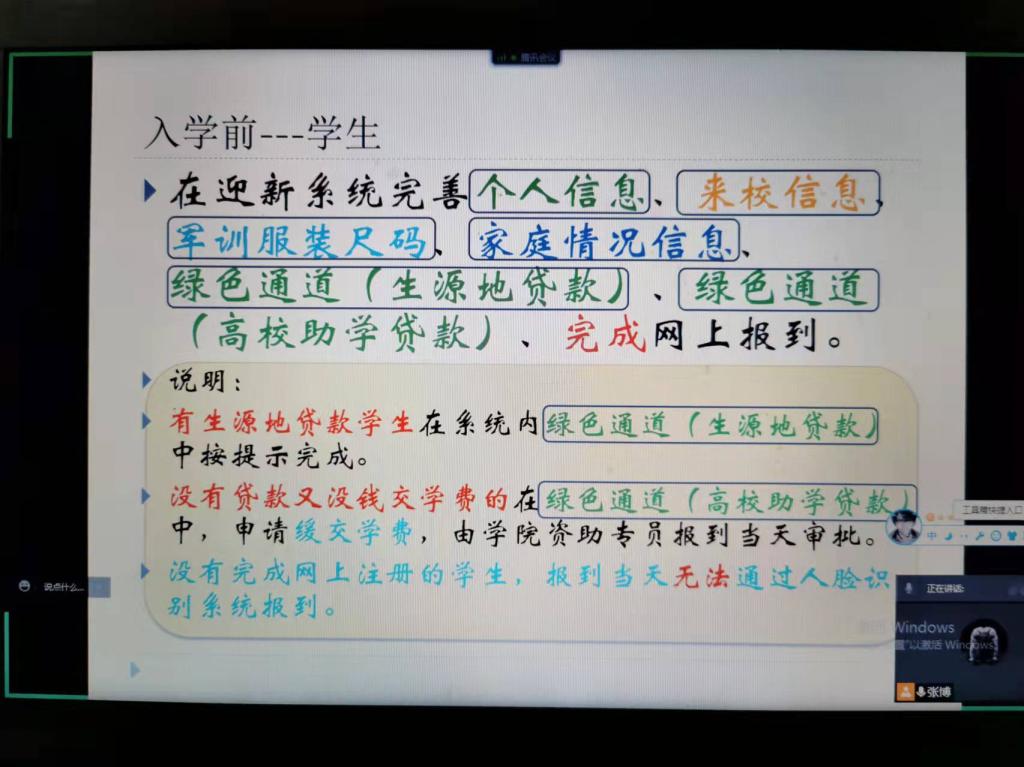 腾讯会议
入学前---学生
在迎新系统完善个人信息、来校信息、
军训服装尺码、家庭情况信息、
绿色通道（生源地贷款）、绿色通道
（高校助学贷款）、完成网上报到。
说明：
有生源地贷款学生在系统内绿色通道（生源地贷款）
中按提示完成。
没有贷款又没钱交学费的在绿色通道（高校助学贷款）
中，申请缓交学费，由学院资助专员报到当天审批。
没有完成网上注册的学生，报到当天无法通过人脸识
别系统报到。
工具箱快捷入口
中
说点什么...
正在讲话:
Windows
置"以激活 Windows
张博